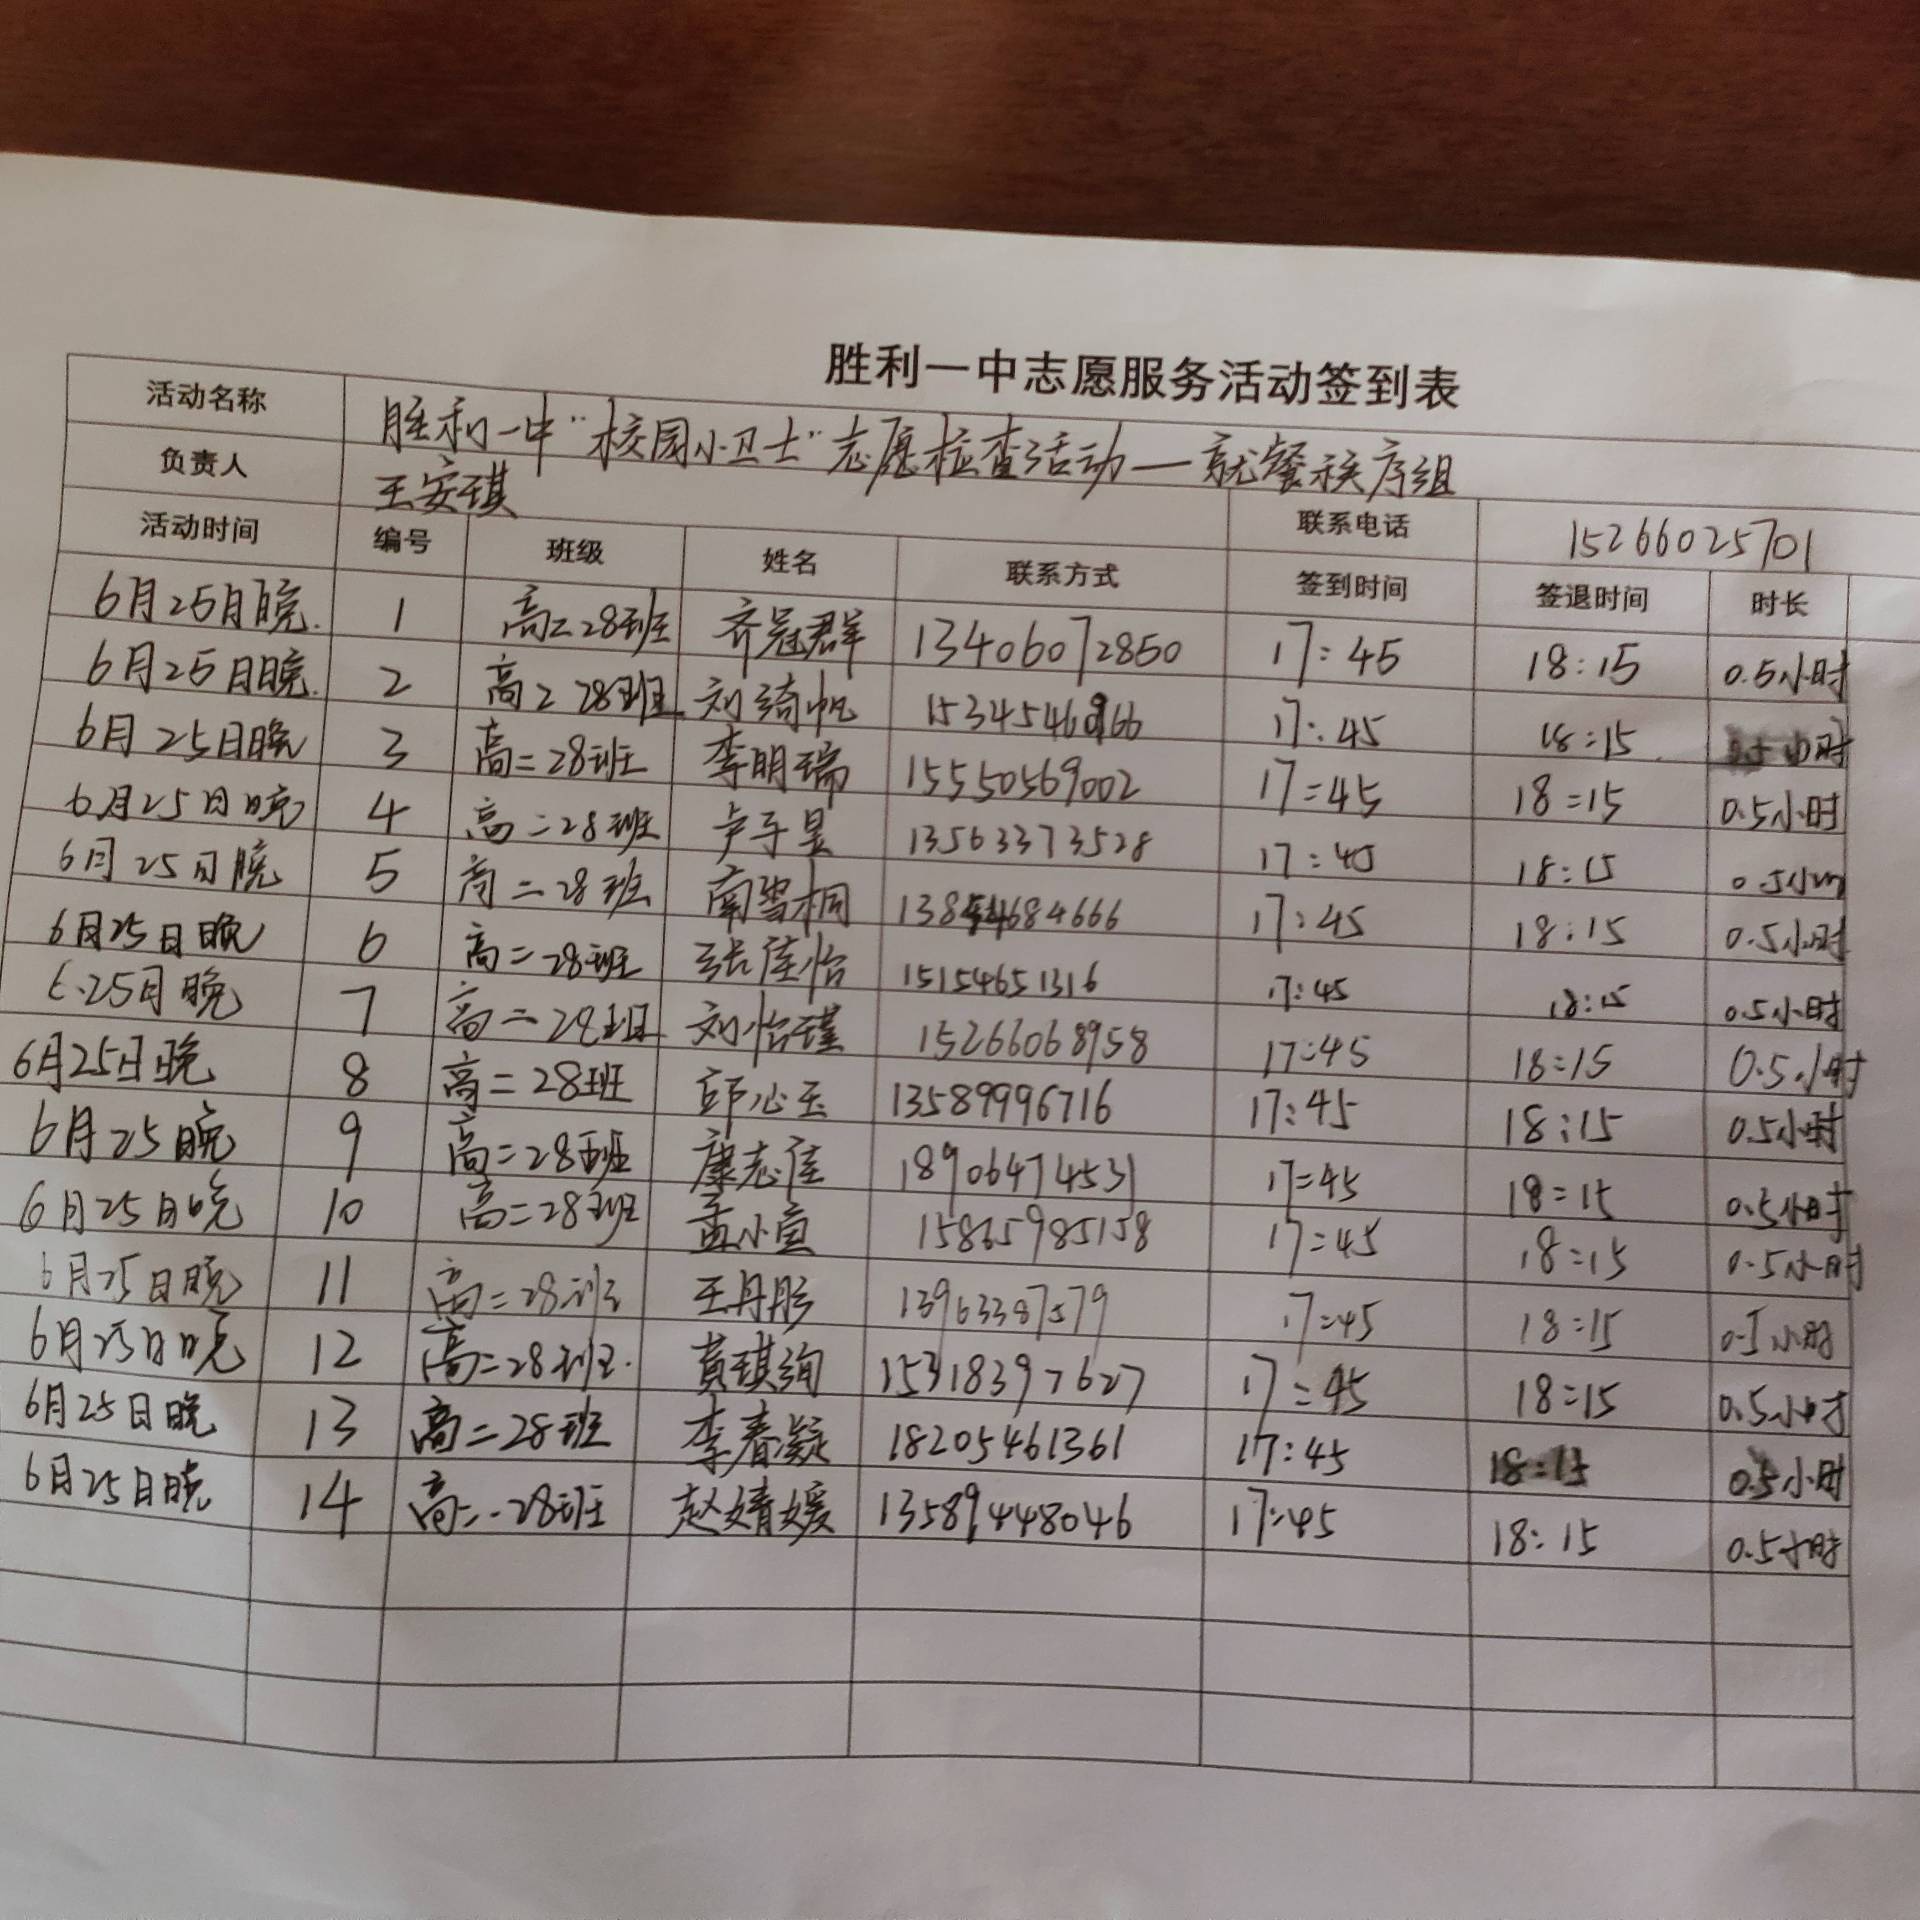 胜利一中志愿服务活动签到表
活动名称 胜利一中“校园小卫士”志愿检查活动—就餐秩序组
负责人 王安琪 联系电话 15266025701
活动时间 编号 班级 姓名 联系方式 签到时间 签退时间 时长
6月25日晚. 1 高二28班 齐冠群 13406072850 17:45 18:15 0.5小时
6月25日晚. 2 高二28班 刘绮帆 15345460966 17:45 18:15 小时
6月25日晚 3 高二28班 李明瑞 15550569002 17:45 18:15 0.5小时
6月25日晚 4 高二28班 卢子昱 13563373528 17:45 18:15 0.5小时
6月25日晚 5 高二28班 南雪桐 13854684666 17:45 18:15 0.5小时
6月25日晚 6 高二28班 张佳怡 15154651316 17:45 18:15 0.5小时
6.25日晚 7 高二28班 刘怡瑾 15266068958 17:45 18:15 0.5小时
6月25日晚 8 高二28班 邱心玉 13589996716 17:45 18:15 0.5小时
6月25晚 9 高二28班 康志佳 18906474531 17:45 18:15 0.5小时
6月25日晚 10 高二28班 孟小宣 15865985158 17:45 18:15 0.5小时
6月25日晚 11 高二28班 王丹彤 13963387579 17:45 18:15 0.5小时
6月25日晚 12 高二28班. 黄琪绚 15318397627 17:45 18:15 0.5小时
6月25日晚 13 高二28班 李春凝 18205461361 17:45 18:15 0.5小时
6月25日晚 14 高二28班 赵婧媛 13589448046 17:45 18:15 0.5小时